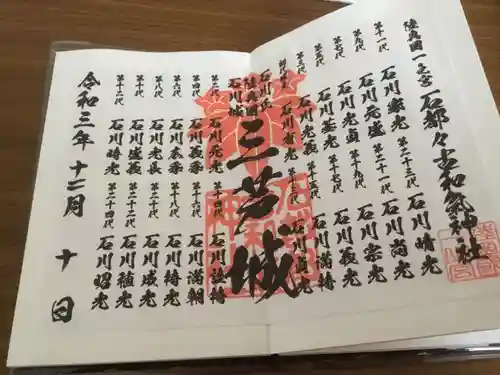 陸奥国一之宮 石都々古和氣神社
第十一代 石川家光 第二十三代 石川晴光
第九代 石川元盛 第二十一代 石川尚光
第七代 石川光貞 第十九代 石川宗光
第五代 石川基光 第十七代 石川義光
第三代 石川光義 第十五代 石川満持
初代城主 石川有光 第十三代 石川貞光
石川氏
三芦城
陸奥國
石川城
第二代 石川元光 第十四代 石川詮持
第四代 石川義季 第十六代 石川満朝
第六代 石川広季 第十八代 石川持光
第八代 石川光長 第二十代 石川成光
第十代 石川盛義 第二十二代 石川稙光
第十二代 石川時光 第二十四代 石川昭光
令和三年 十二月 十日